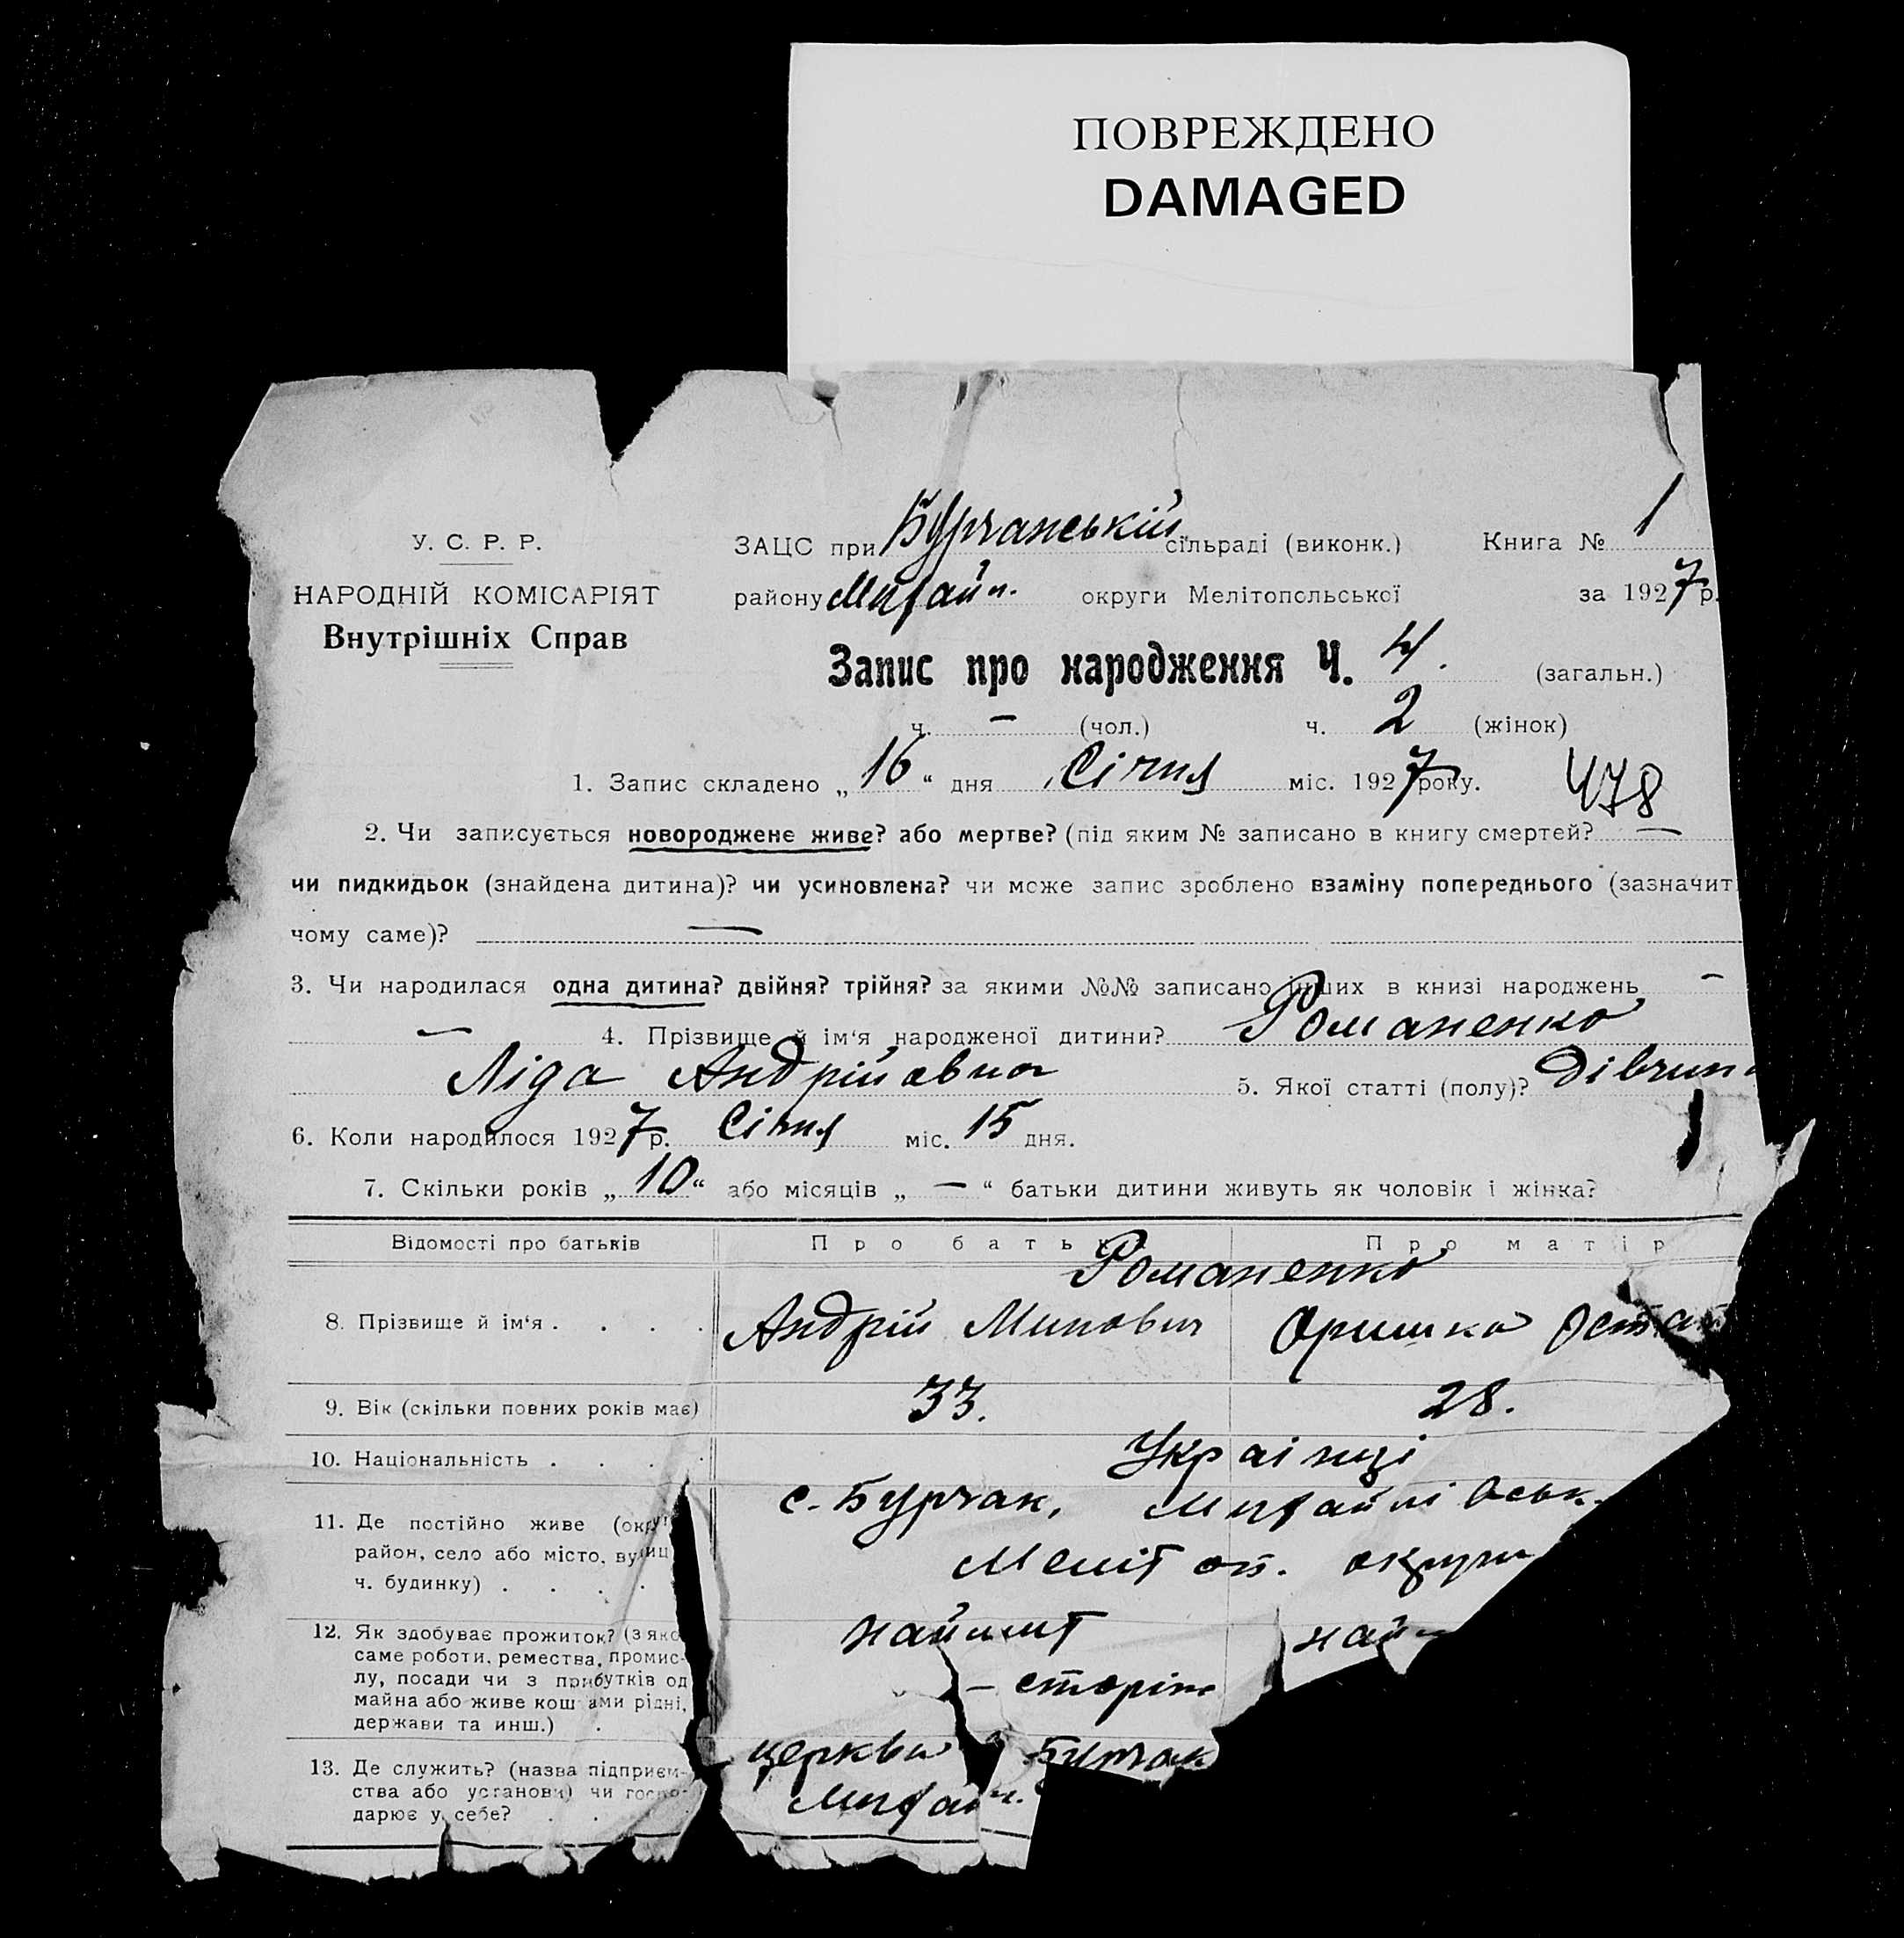 ПОВРЕЖДЕНО
DAMAGED
У. С. Р. Р.
НАРОДНІЙ КОМІСАРІЯТ
Внутрішніх Справ
ЗАЦС при Бурчанській сільраді (виконк.) Книга № 1
району Михайл. округи Мелітопольської за 1927 р.
Запис про народження Ч. 4. (загальн.)
ч. – (чол.) ч. 2 (жінок)
1. Запис складено „16“ дня Січня міс. 1927 року.
478
2. Чи записується новороджене живе? або мертве? (під яким № записано в книгу смертей? —
чи пидкидьок (знайдена дитина)? чи усиновлена? чи може запис зроблено взаміну попереднього (зазначит
чому саме)? —
3. Чи народилася одна дитина? двійня? трійня? за якими №№ записано інших в книзі народжень –
— 4. Прізвище й ім‘я народженої дитини? Романенко
Ліда Андрійовна 5. Якої статті (полу)? Дівчин
6. Коли народилося 1927 р. Січня міс. 15 дня.
7. Скільки років „10“ або місяців „—“ батьки дитини живуть як чоловік і жінка?
Відомості про батьків Про батьк Про матір
Романенко
8. Прізвище й ім‘я . . . . Андрій Оришка
9. Вік (скільки повних років має) 33. 28.
10. Національність . . . . Українці
11. Де постійно живе (окру с. Бурчак, Михайлівськ.
район, село або місто, вулиц Меліт оп. округи
ч. будинку) . . . .
12. Як здобуває прожиток? (з яко наймит най
саме роботи, ремества, промис-
лу, посади чи з прибутків од – сторіж
майна або живе кош ами рідні,
держави та инш.) .
13. Де служить? (назва підприєм- церкви Бурчак
ства або установи) чи госпо- Михайл.
дарює у себе? . . .